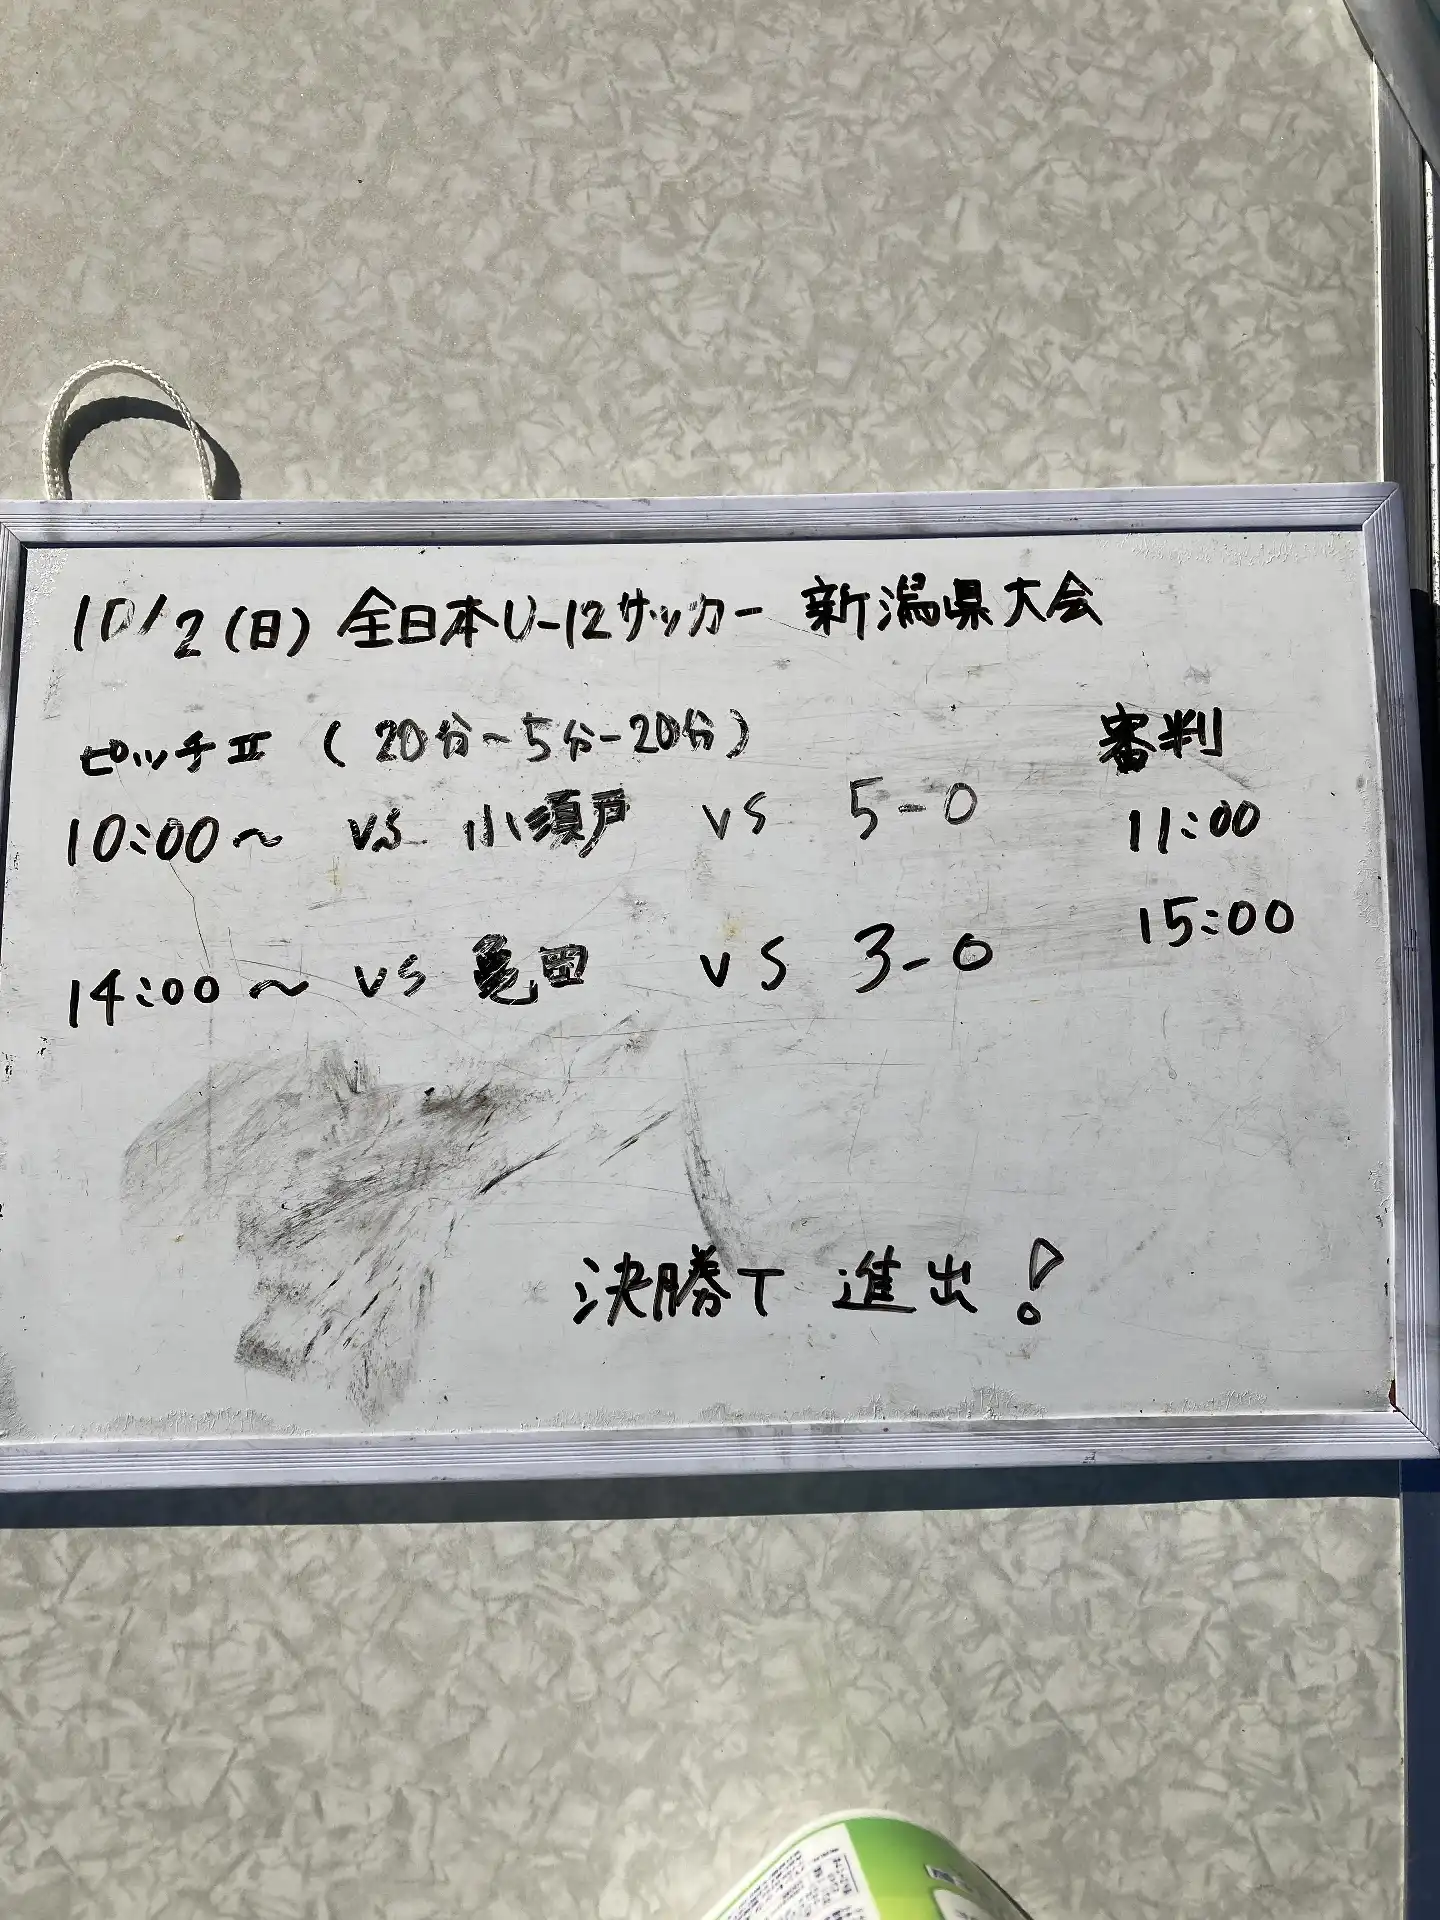 10/2(日) 全日本U-12サッカー 新潟県大会
ピッチⅡ (20分-5分-20分) 審判
10:00~ vs 小須戸 vs 5-0 11:00
14:00~ vs 亀田 vs 3-0 15:00
決勝T 進出!